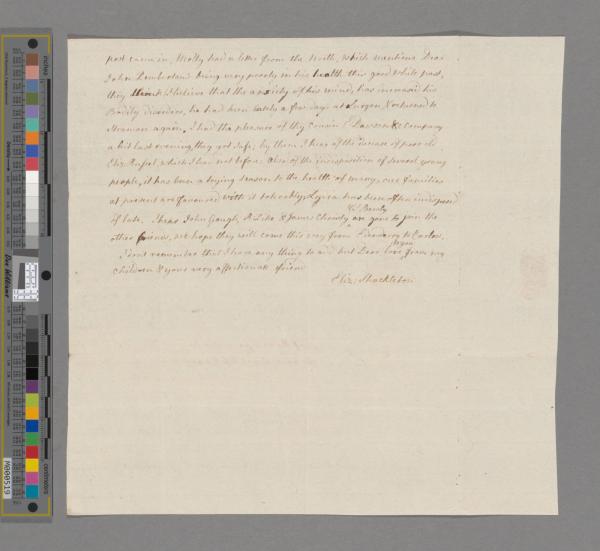 post came in, Molly had a letter from the North, which mentions Dear
John Pemberland being very poorly in his health this good while past,
they think & believe that the anxiety of his mind, has increased his
Bodily disorders, he had been lately a few days at Lurgan & returned to
again, I had the pleasure of thy Cousin Dawson & Company
a bit last evening, they got safe, by them I hear of the decease of poor old
Eliz: Russel, which I had not before. Also of the indisposition of several young
people, it has been a trying season to the health of many, our families
at present are favoured with it tolerably, Lydia has been often indisposed
of late. I hear John Gough, & James Christy are gone to join the
other friends, we hope they will come this way from to Carlow,
I dont remember that I have any thing to add but Dear love from my
again
children & your very affectionate friend
Eliz: Shackleton
inches
centimeters
M000519